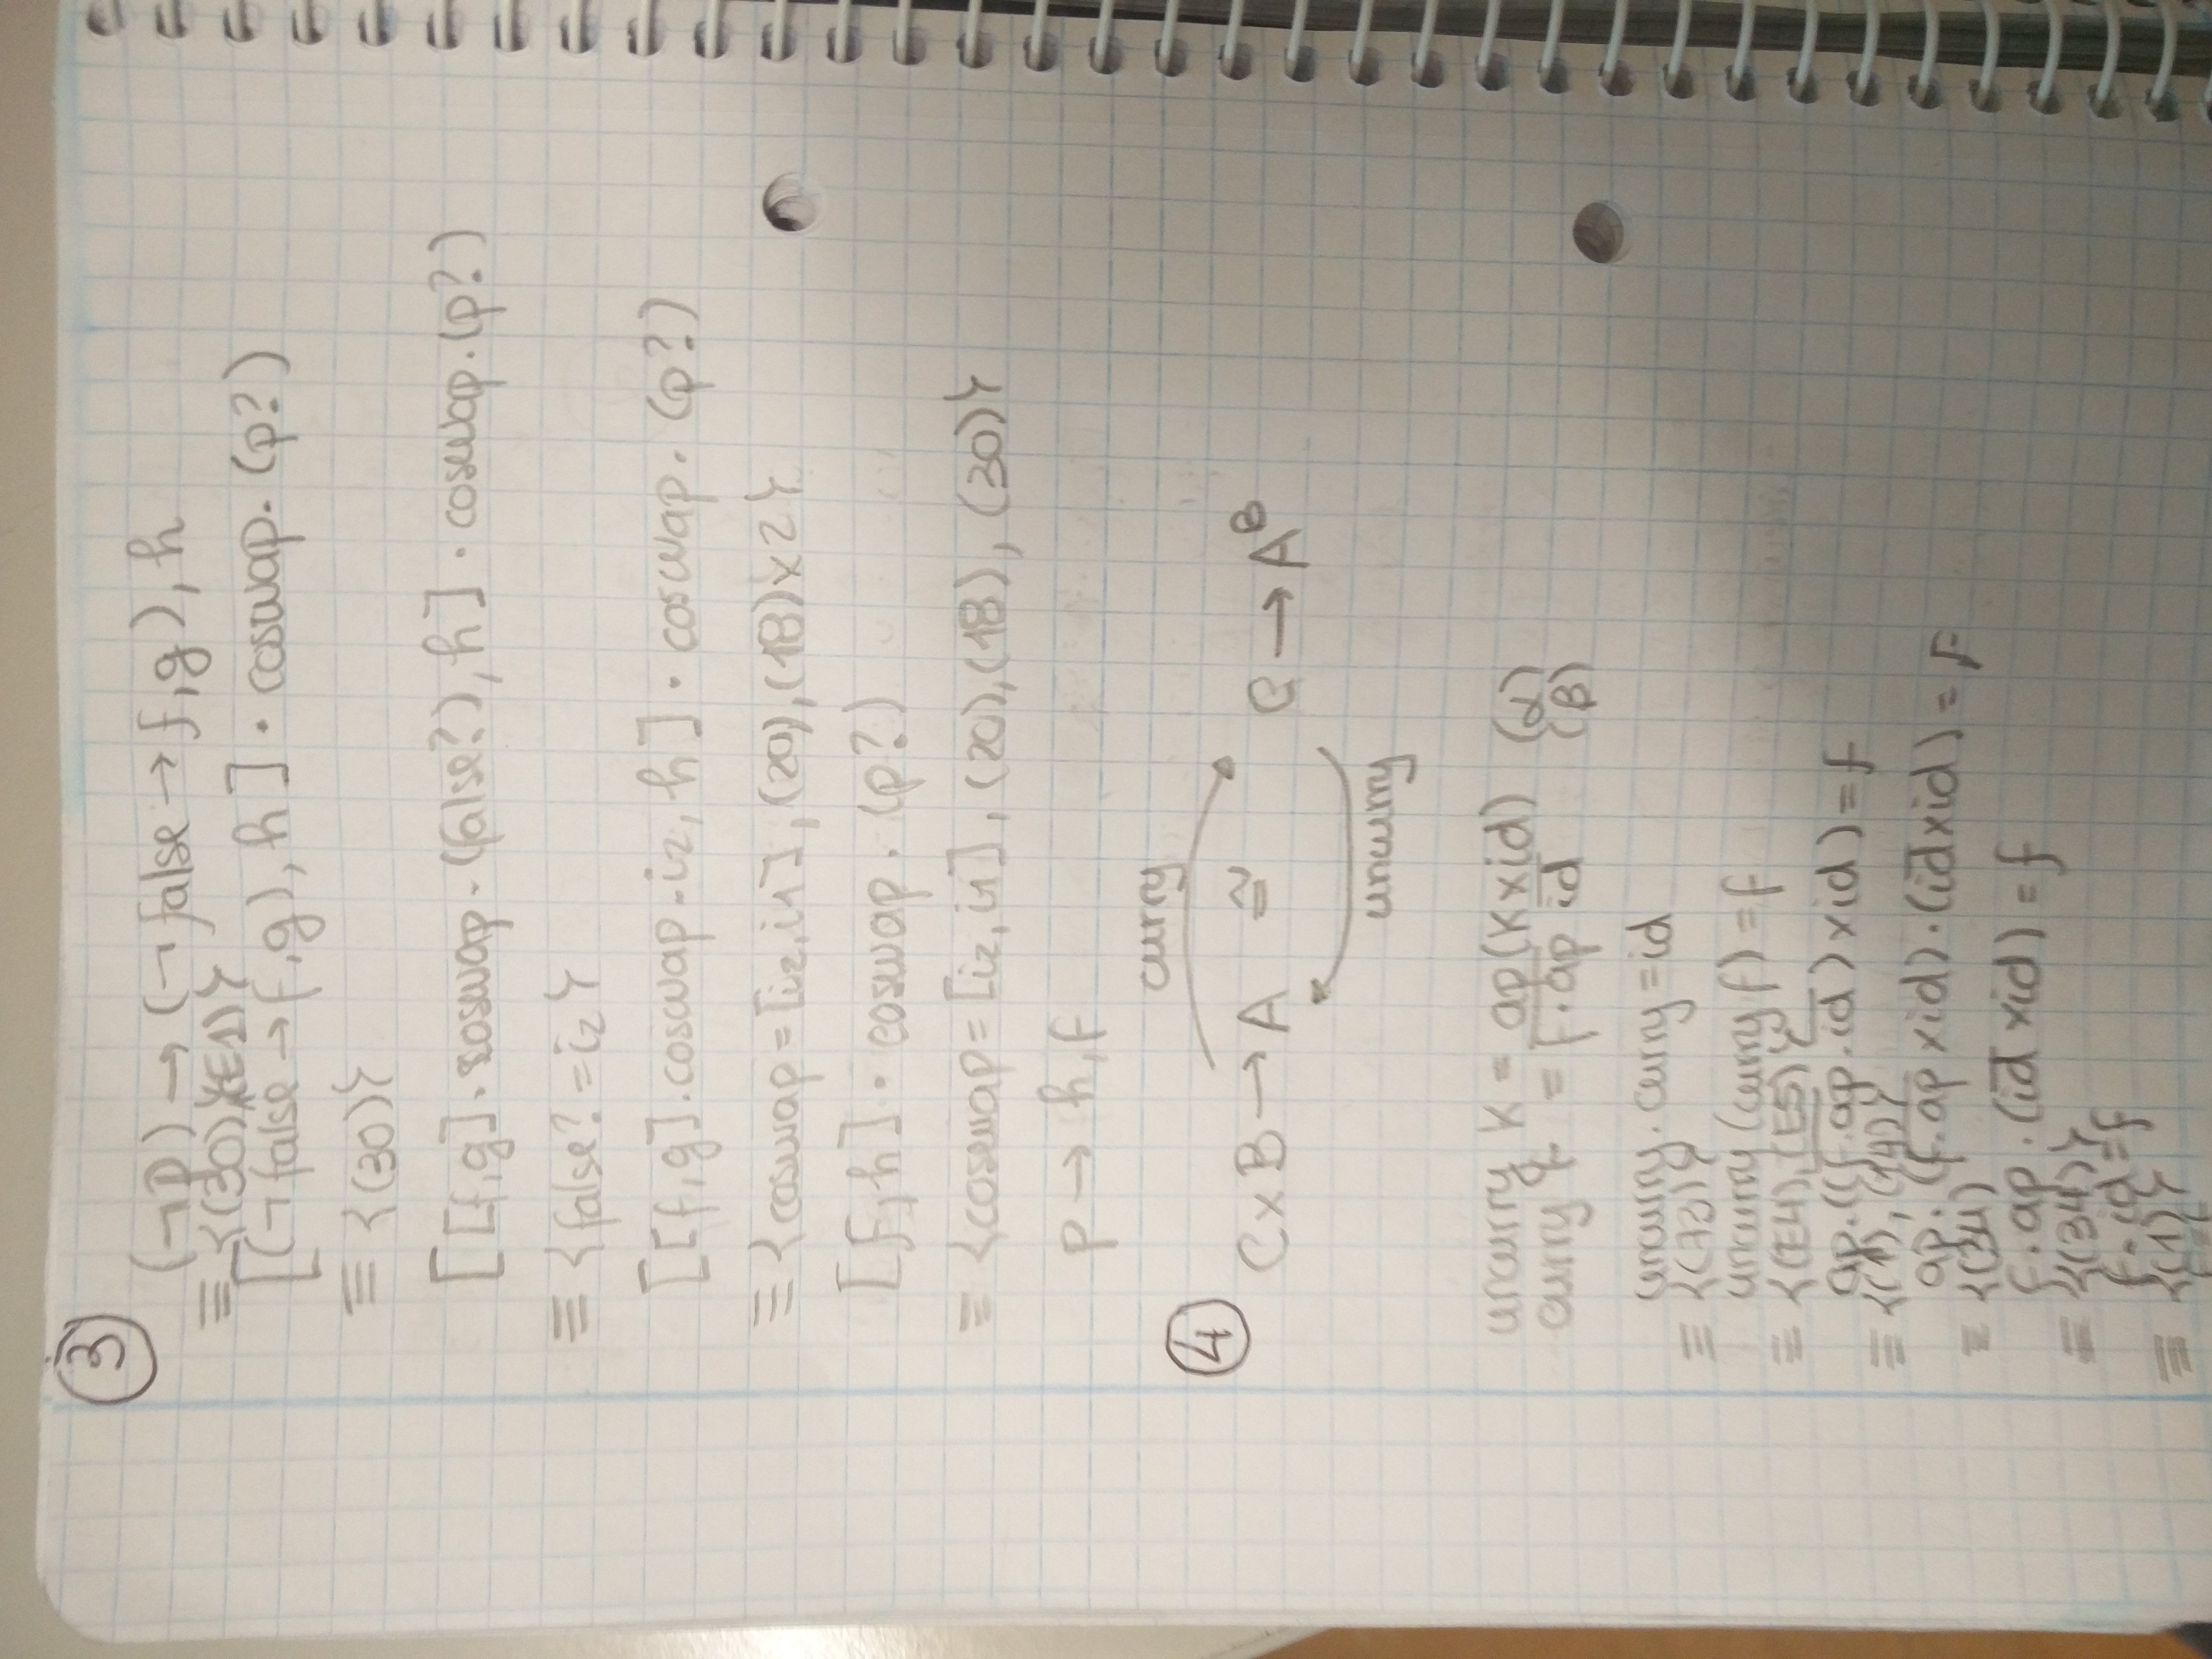 ③
(¬p) → (¬false → f, g), h
≡ {(30), (E1)}
[(¬false → f, g), h] · coswap · (p?)
≡ {(30)}
[[f, g] · coswap · (false?), h] · coswap · (p?)
≡ {false? = i₂}
[[f, g] · coswap · i₂, h] · coswap · (p?)
≡ {coswap = [i₂, i₁], (20), (18)×2}
[f, h] · coswap · (p?)
≡ {coswap = [i₂, i₁], (20), (18), (30)}
p → h, f
curry
④ C×B → A ≅ C → Aᴮ
uncurry
uncurry k = ap(k×id) (α)
curry f = f̅·̅a̅p̅ i̅d̅ (β)
uncurry · curry = id
≡ {(73)}
uncurry (curry f) = f
≡ {(E4), (E5)}
ap · ((f̅·̅a̅p̅ · i̅d̅) × id) = f
≡ {(1), (14)}
ap · (f̅·̅a̅p̅ × id) · (i̅d̅ × id) = f
≡ {(34)
f · ap · (i̅d̅ × id) = f
≡ {(34)}
f · id = f
≡ {(1)}